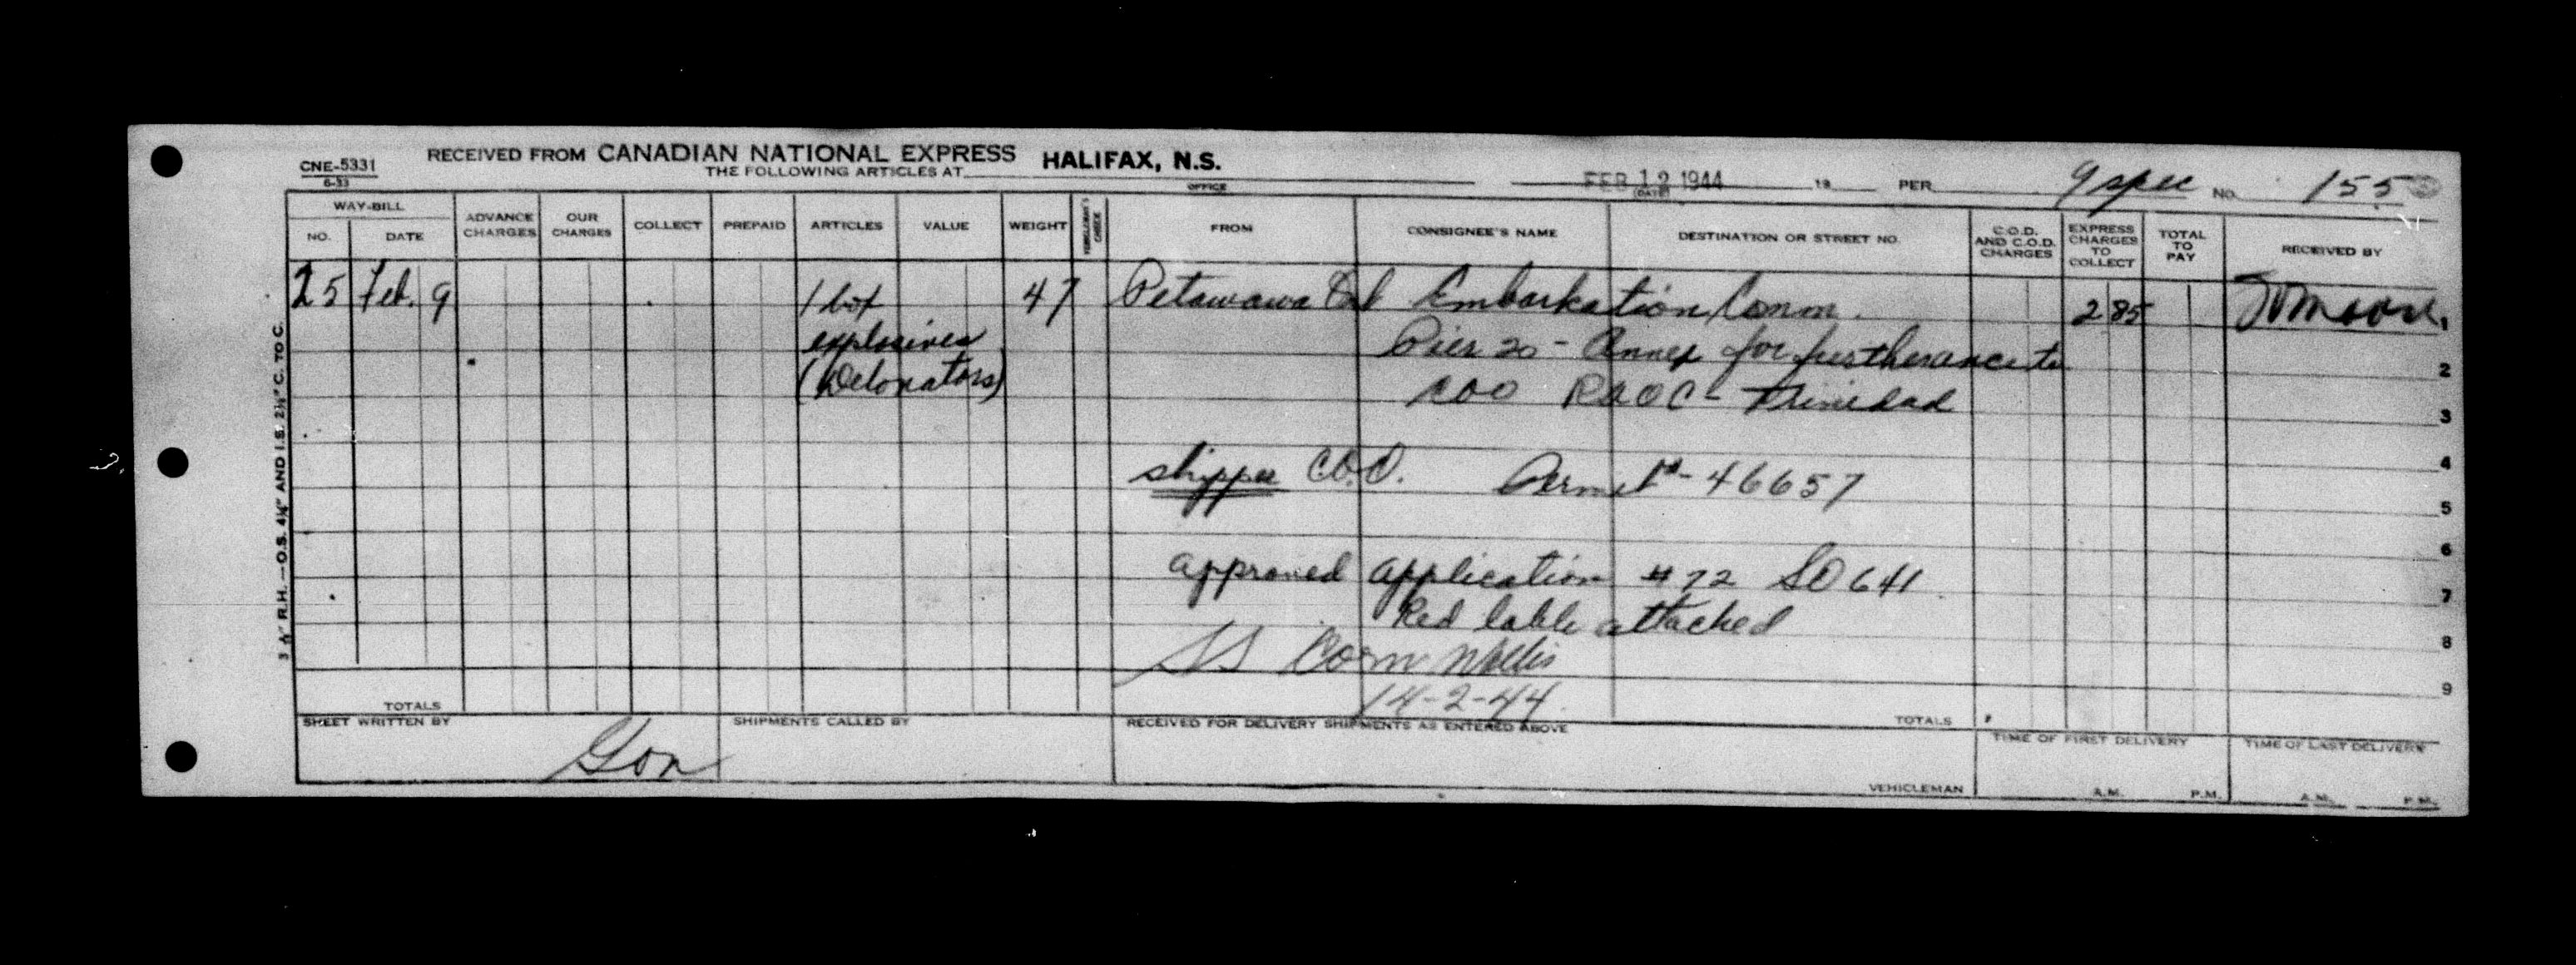 CNE-5331
6-33
RECEIVED FROM CANADIAN NATIONAL EXPRESS HALIFAX, N.S.
THE FOLLOWING ARTICLES AT
OFFICE
FEB 12 1944 19 PER 9 spec NO. 155
(DATE)
WAY-BILL
NO. DATE ADVANCE CHARGES OUR CHARGES COLLECT PREPAID ARTICLES VALUE WEIGHT CHECK FROM CONSIGNEE'S NAME DESTINATION OR STREET NO. C.O.D. AND C.O.D. CHARGES EXPRESS CHARGES TO COLLECT TOTAL TO PAY RECEIVED BY
25 Feb. 9 1 bot 47 Petawawa Embarkation Comm. 2 85 1
explosives Pier 20 - Annex for furtherance to 2
(Detonators) COO RAOC - Trinidad 3
shipper C.O.O. Permit - 46657 4
5
6
approved application # 72 SO 641 7
Red lable attached 8
SS Cornwallis 9
14-2-44.
3 ⅛" R.H.—O.S. 4¼" AND I.S. 2½" C. TO C.
TOTALS TOTALS
SHEET WRITTEN BY SHIPMENTS CALLED BY RECEIVED FOR DELIVERY SHIPMENTS AS ENTERED ABOVE TIME OF FIRST DELIVERY TIME OF LAST DELIVERY
Gon
VEHICLEMAN A.M. P.M. A.M. P.M.